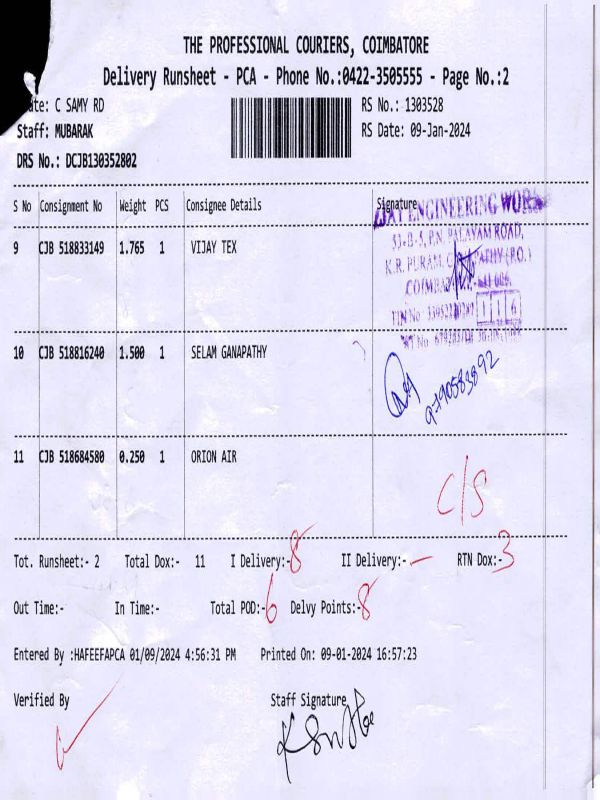 THE PROFESSIONAL COURIERS, COIMBATORE
Delivery Runsheet - PCA - Phone No.:0422-3505555 - Page No.:2
ate: C SAMY RD
RS No.: 1303528
Staff: MUBARAK
RS Date: 09-Jan-2024
DRS No.: DCJB130352802
S No Consignment No Weight PCS Consignee Details Signature
ENGINEERING
53-B-5, P.N. PALAYAM ROAD,
K.R. PURAM,
9 CJB 518833149 1.765 1 VIJAY TEX
10 CJB 518816240 1.500 1 SELAM GANAPATHY
9790583892
11 CJB 518684580 0.250 1 ORION AIR
C/S
Tot. Runsheet:- 2 Total Dox:- 11 I Delivery:-8 II Delivery:- – RTN Dox:-3
Out Time:- In Time:- Total POD:-6 Delvy Points:-8
Entered By :HAFEEFAPCA 01/09/2024 4:56:31 PM Printed On: 09-01-2024 16:57:23
Verified By Staff Signature